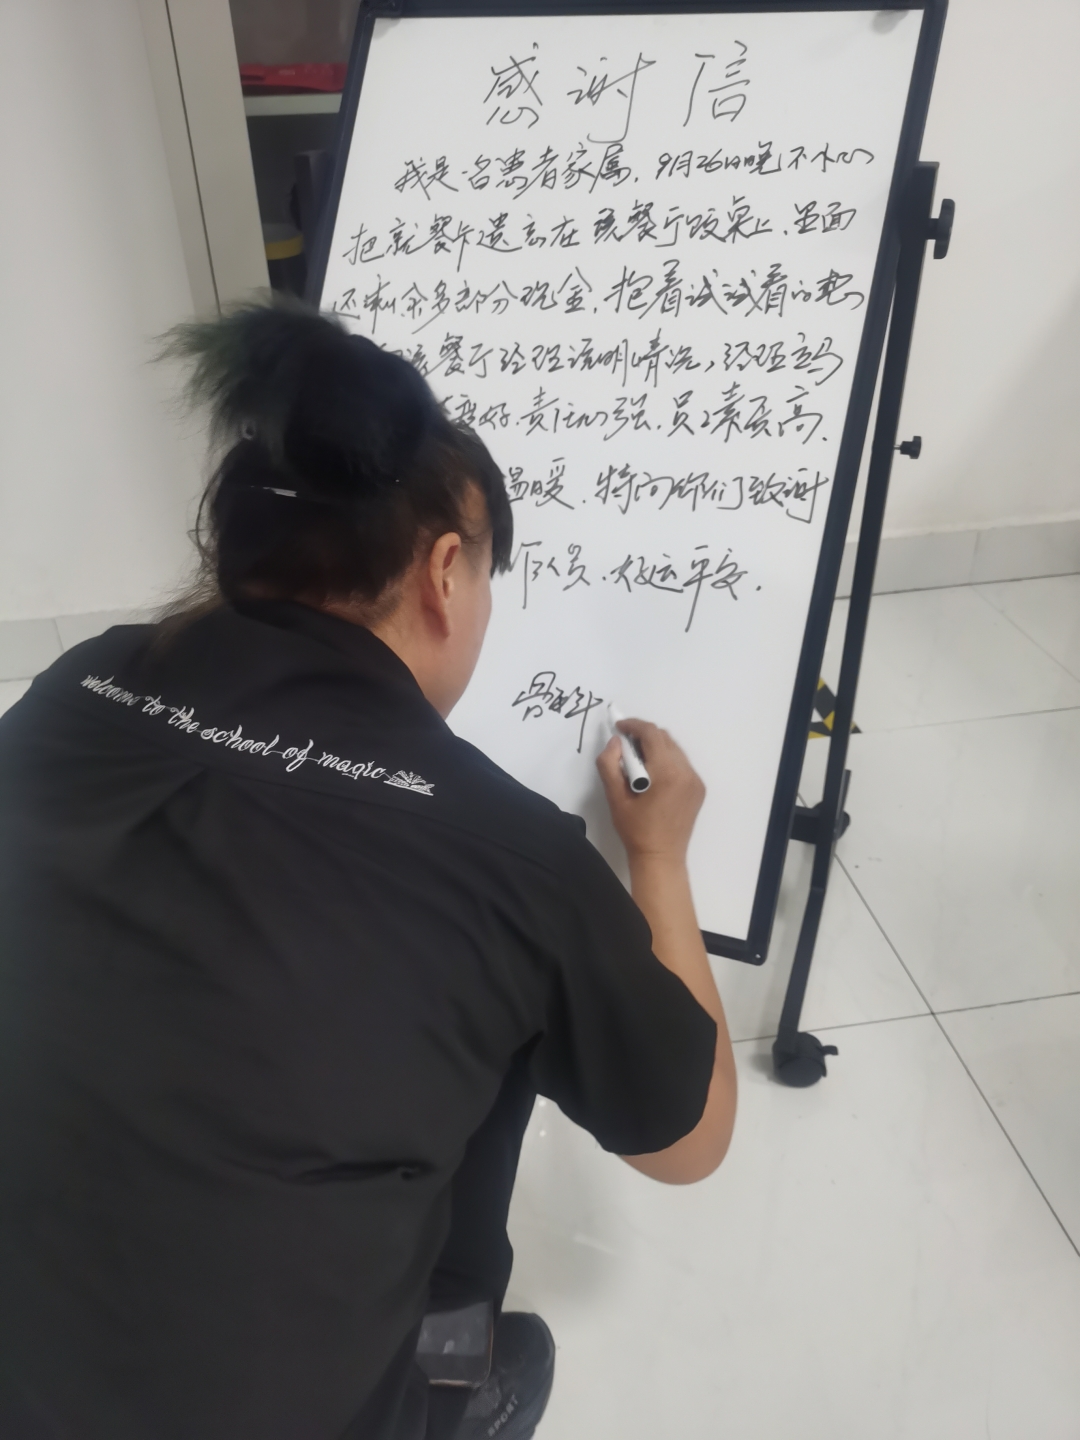 感谢信
我是一名患者家属，9月26日晚不小心
把就餐卡遗忘在 餐厅饭桌上，里面
还剩余多部分现金，抱着试试看的
餐厅经理说明情况，经理立马
好，责任心强，员工素质高，
温暖，特向你们致谢
队员，好运平安．
骨科
welcome to the school of magic
SPORT